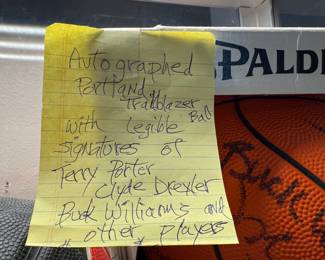 Autographed
Portland
Trailblazer
Ball
with legible
signatures of
Terry Porter
Clyde Drexler
Buck Williams and
other players
SPALD
Buck